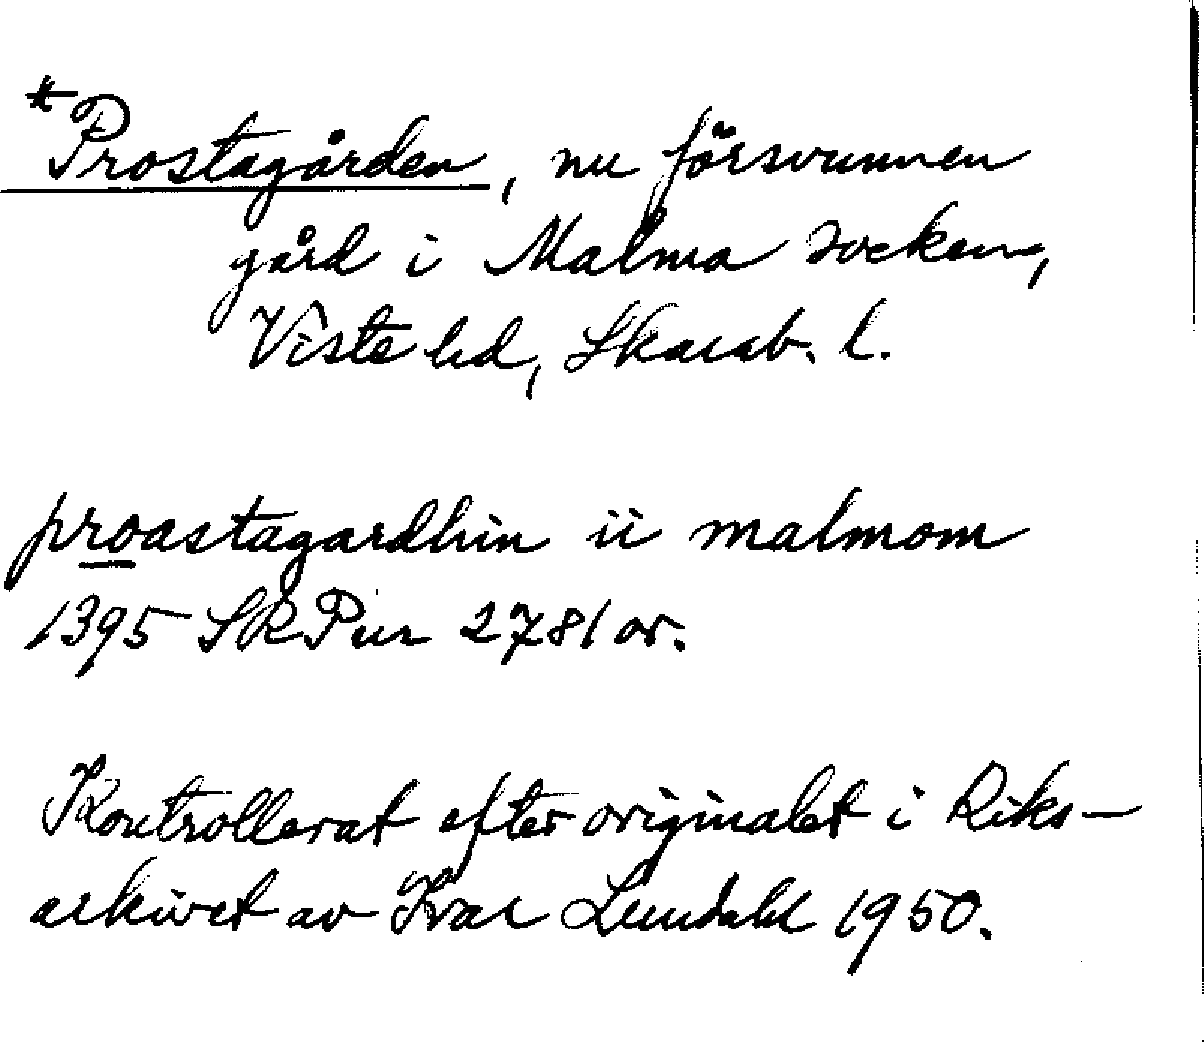 *Prostagården, nu försvunnen
gård i Malma socken,
Viste hd, Skarab. l.
proastagardhin ii malmom
1395 SRPür 2781 or.
Kontrollerat efter originalet i Riks-
arkivet av Ivar Lundahl 1950.